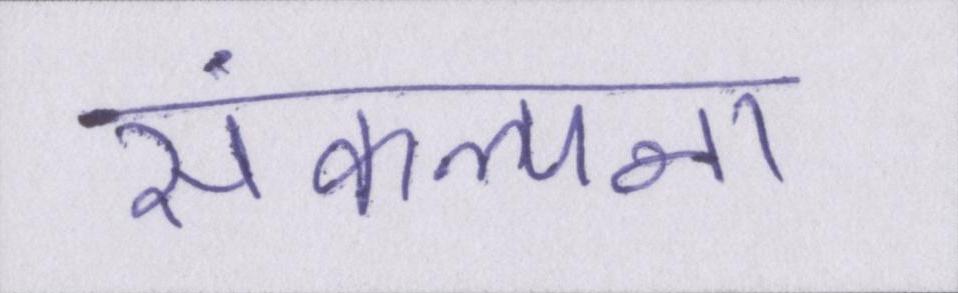 संकल्पना